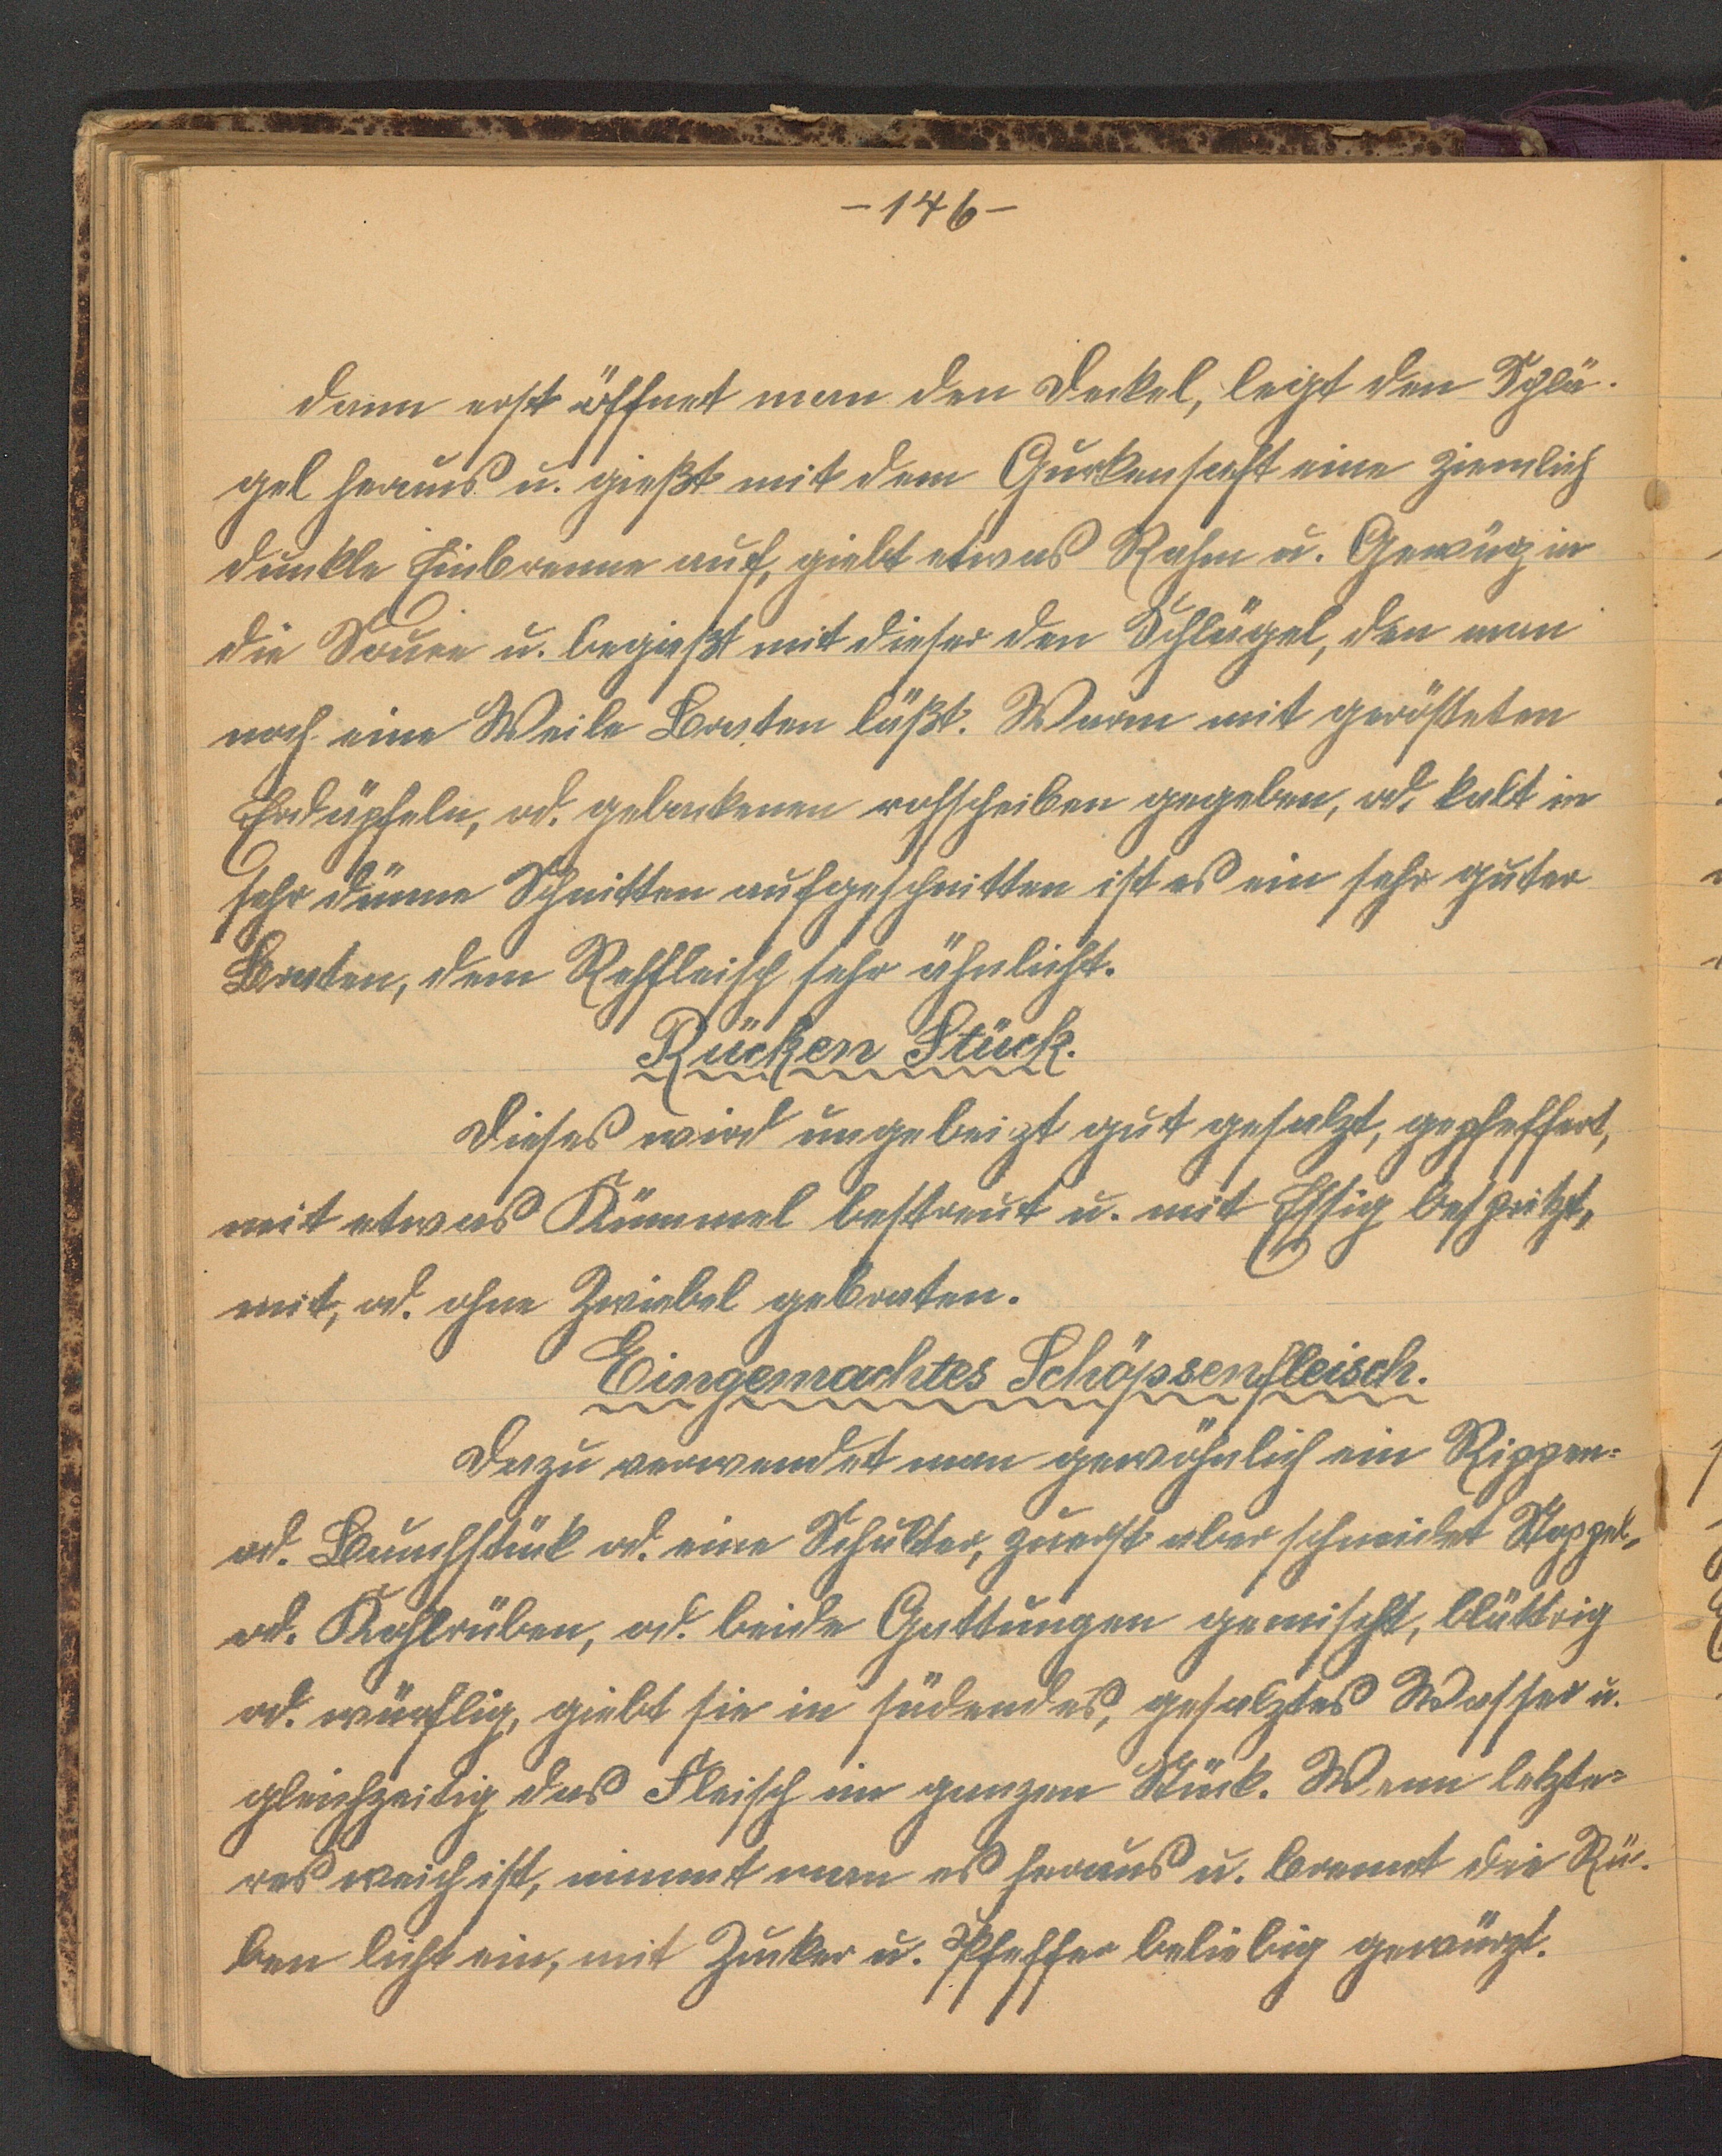 - 146 -
dann erst öffnet man den Deckel, legt den Schlä-
gel heraus u. gießt mit dem Gurkensaft eine ziemlich
dunkle Einbrenne auf, giebt etwas Rahm u. Gewürz in
die Sauce u. begießt mit dieser den Schlägel, den man
noch eine Weile Braten läßt. Warm mit gerösteten
Erdäpfeln, od. gebackenen rohscheiben gegeben, od. kalt in
sehr dünne Schnitten aufgeschnitten ist es ein sehr guter
Braten, dem Rehfleisch sehr ähnlicht.
Rücken Stück.
Dieses wird ungebeizt gut gesalzt, gepfeffert,
mit etwas Kümmel bestreut u. mit Essig bespritzt,
mit, od. ohne Zwiebel gebraten.
Eingemachtes Schöpsenfleisch.
Dazu verwendet man gewöhnlich ein Rippen=
od. Bauchstück od. eine Schulter, zuerst aber schneidet Stoppel-
od. Kohlrüben, od. beide Gattungen gemischt, blättrig
od. würflig, giebt sie in südendes, gesalztes Wasser u.
gleichzeitig das Fleisch im ganzen Stück. Wenn letzte=
res weich ist, nimmt man es heraus u. brennt die Rü-
ben licht ein, mit Zucker u. Pfeffer beliebig gewürzt.